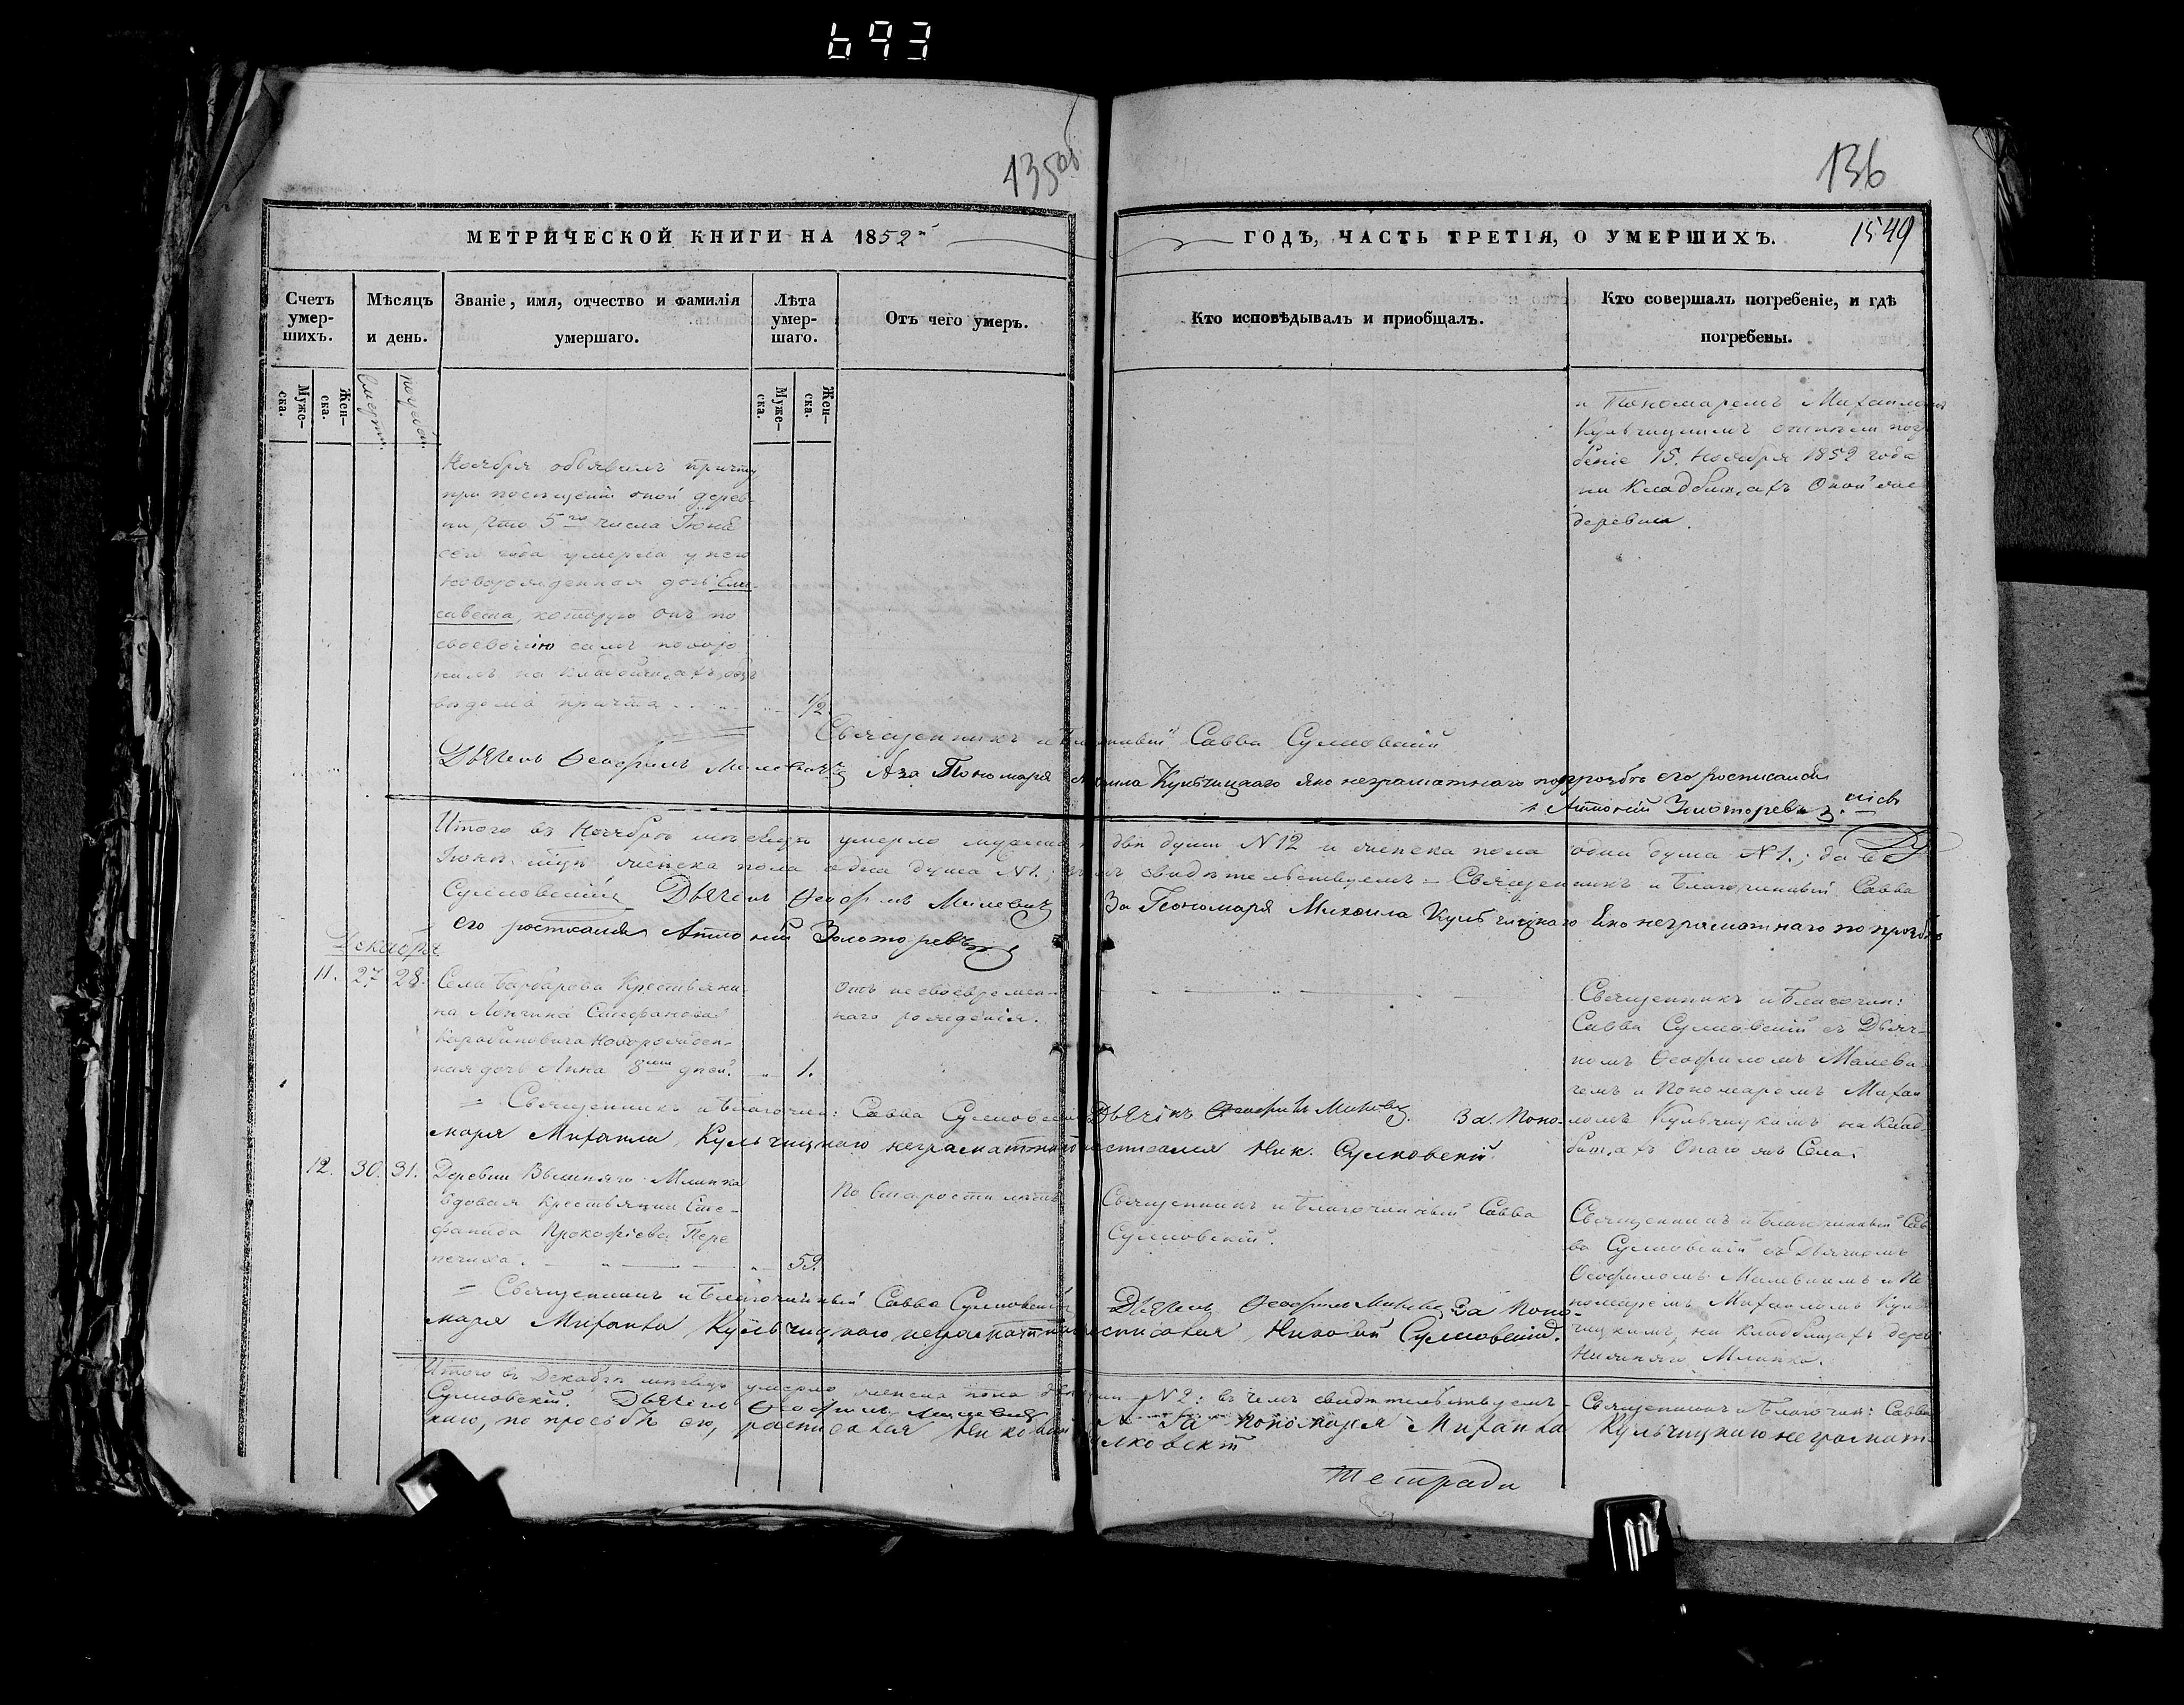 693
135об
136
МЕТРИЧЕСКОЙ КНИГИ НА 1852й
ГОДЪ, ЧАСТЬ ТРЕТІЯ, О УМЕРШИХЪ.
1549
Счетъ умер-шихъ.
Мѣсяцъ и день.
Званіе, имя, отчество и фамилія умершаго.
Лѣта умер-шаго.
Отъ чего умеръ.
Кто исповѣдывалъ и приобщалъ.
Кто совершалъ погребеніе, и гдѣ погребены.
Муже-ска.
Жен-ска.
Муже-ска.
Жен-ска.
Ноября объявилъ причту,
при посѣщеніи оной дерев-
ни, что 5го числа Іюня
сего года умерла у него
новорожденная дочь Ели-
савета, которую онъ по
своеволію самъ похоро
нилъ на кладбищахъ, безъ
вѣдома причта 1/2
и Пономаремъ Михаиломъ
Кульчицкимъ
беніе 15. Ноября 1852 года
на Кладбищахъ Оной же
деревни.
Священникъ и Благочинный Савва Сулковскій
Дьячекъ Ѳеофилъ Малевичъ А за Пономаря Михаила Кульчицкаго яко неграматнаго по прозбѣ его росписался
Антоній Золоторевичъ.
Итого въ Ноябрѣ мѣсяцѣ умерло мужеска двѣ души № 12 и женска пола одна душа № 1.; да въ
Іюнѣ женска пола одна душа № 1.; свидѣтельствуемъ – Священникъ и Благочинный Савва
Сулковскій Дьячекъ Ѳеофилъ Малевичъ За Пономаря Михаила Кульчицкаго Яко неграмотнаго по прозбѣ
его росписался Антоній Золоторевичъ
Декабрь
11. 27 28. Села Барбарова Крестьяни
на Лонгина Стефанова
Карабиновича новорожден-
ная дочь Анна 8 дней. 1.
Отъ несвоевремен-
наго рожденія.
Священникъ и Благочин:
Савва Сулковскій съ Дьяч-
комъ Ѳеофиломъ Малеви-
чемъ и Пономаремъ Михаи
ломъ Кульчицкимъ на Клад-
бищахъ Онаго жъ Села.
Священникъ и Благочин: Савва Сулковскій Дьячекъ Ѳеофилъ Малевичъ За Поно-
маря Михаила Кульчицкаго неграматнаго росписался Ник. Сулковскій.
12. 30. 31. Деревни Вышняго Млинка
вдовая Крестьянка Сте-
фанида Прокофіева Пере
печиха. 59.
По Старости лѣтъ
Священникъ и Благочинный Савва
Сулковскій.
Священникъ и Благочинный Сав
ва Сулковскій съ Дьячкомъ
Ѳеофиломъ Малевичемъ и По
номаремъ Михаиломъ Куль
чицкимъ, на кладбищахъ дерев
Нижняго Млинка.
Священникъ и Благочинный Савва Сулковскій Дьячекъ Ѳеофилъ Малевичъ За Поно-
маря Михаила Кульчицкаго неграматнаго росписался Николай Сулковскій.
Итого въ Декабрѣ мѣсяцѣ умерло женска пола двѣ души № 2: въ чемъ свидѣтельствуемъ – Священникъ и Благочин: Савва
Сулковскій. Дьячекъ Ѳеофилъ Малевичъ А За Пономаря Михаила Кульчицкаго неграмат-
наго, по просьбѣ его, расписался Николай Сулковскій
тетради